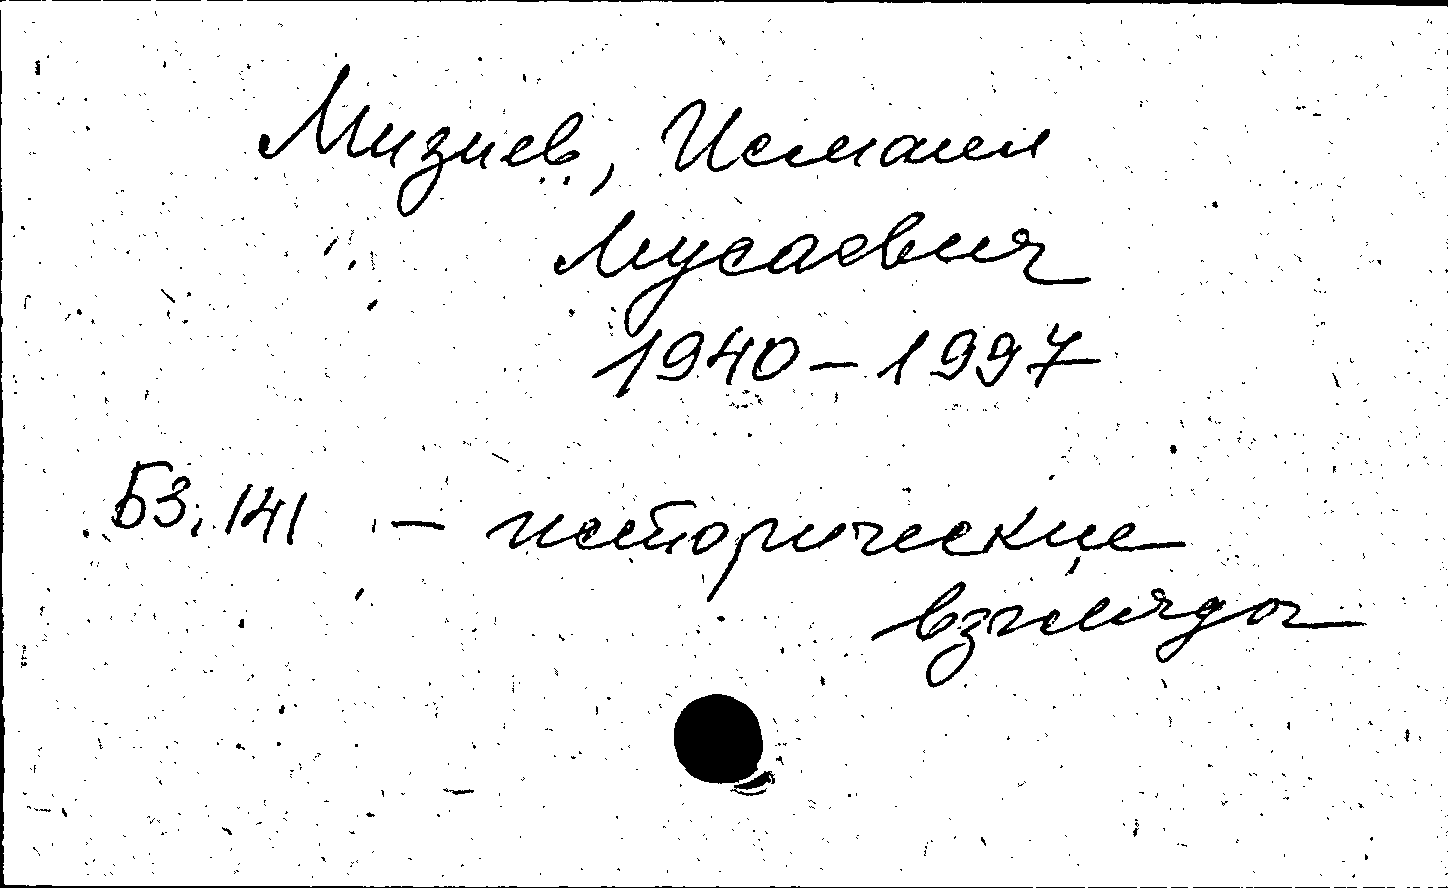 Мизиев, Исмаил
Мусаевич
1940-1997
Б3.141 - исторические
взгляды